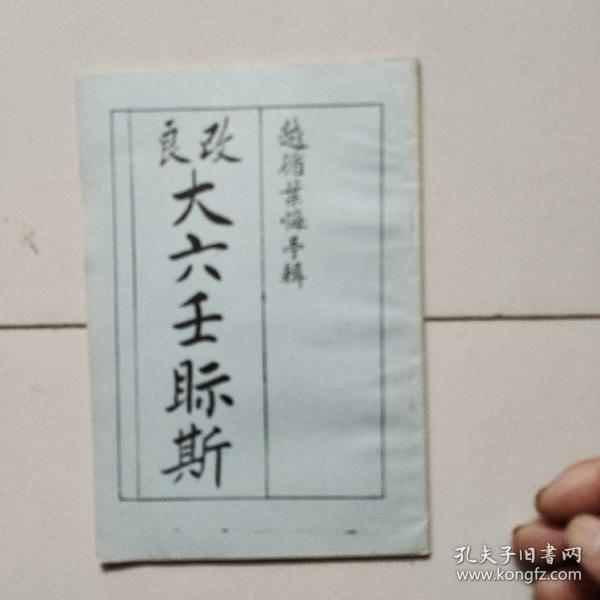 越循葉悔亭輯
改良
大六壬眎斯
孔夫子旧書网
www.kongfz.com